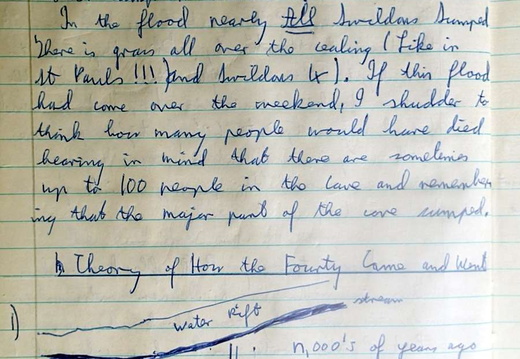 In the flood nearly All Swildons Sumped
There is grass all over the cealing (Like in
St Pauls !!! and Swildons 4). If this flood
had come over the weekend, I shudder to
think how many people would have died
bearing in mind that there are sometimes
up to 100 people in the cave and remember
ing that the major part of the cave sumped.
Theory of How the Fourty Came and Went
1) water rift stream
n,000's of years ago